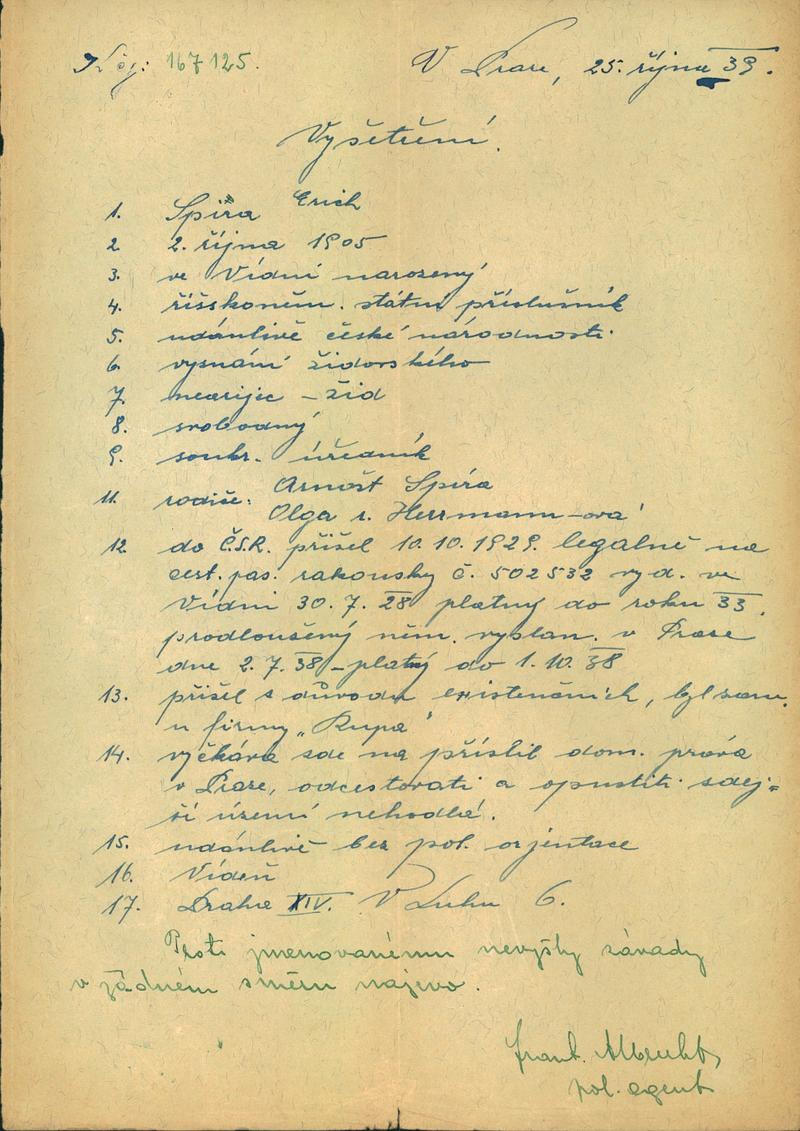 K čj: 167125.
V Praze, 25. října 39.
Vyšetření.
1. Spira Erich
2. 2. října 1905
3. ve Vídni narozený
4. říšskoněm. státní příslušník
5. udánlivě české národnosti
6. vyznání židovského
7. nearijec – žid
8. svobodný
9. soukr. úředník
11. rodiče: Arnošt Spira
Olga r. Herrmann-ová
12. do ČSR. přišel 10.10.1929. legálně na
cest. pas. rakouský č. 502532 vyd. ve
Vídni 30.7.28 platný do roku 33,
prodloužený něm. vyslan. v Praze
dne 2.7.38 – platný do 1.10.38
13. přišel z důvodu existenčních, byl zam.
u firmy „Rupa"
14. vyčkává zde na příslib dom. práva
v Praze, odcestovati a opustiti zdej=
ší území nehodlá.
15. udánlivě bez pol. orjentace
16. Vídeň
17. Praha XIV. V Luhu 6.
Proti jmenovanému nevyšly závady
v žádném směru najevo.
Frant. Albrecht,
pol. agent